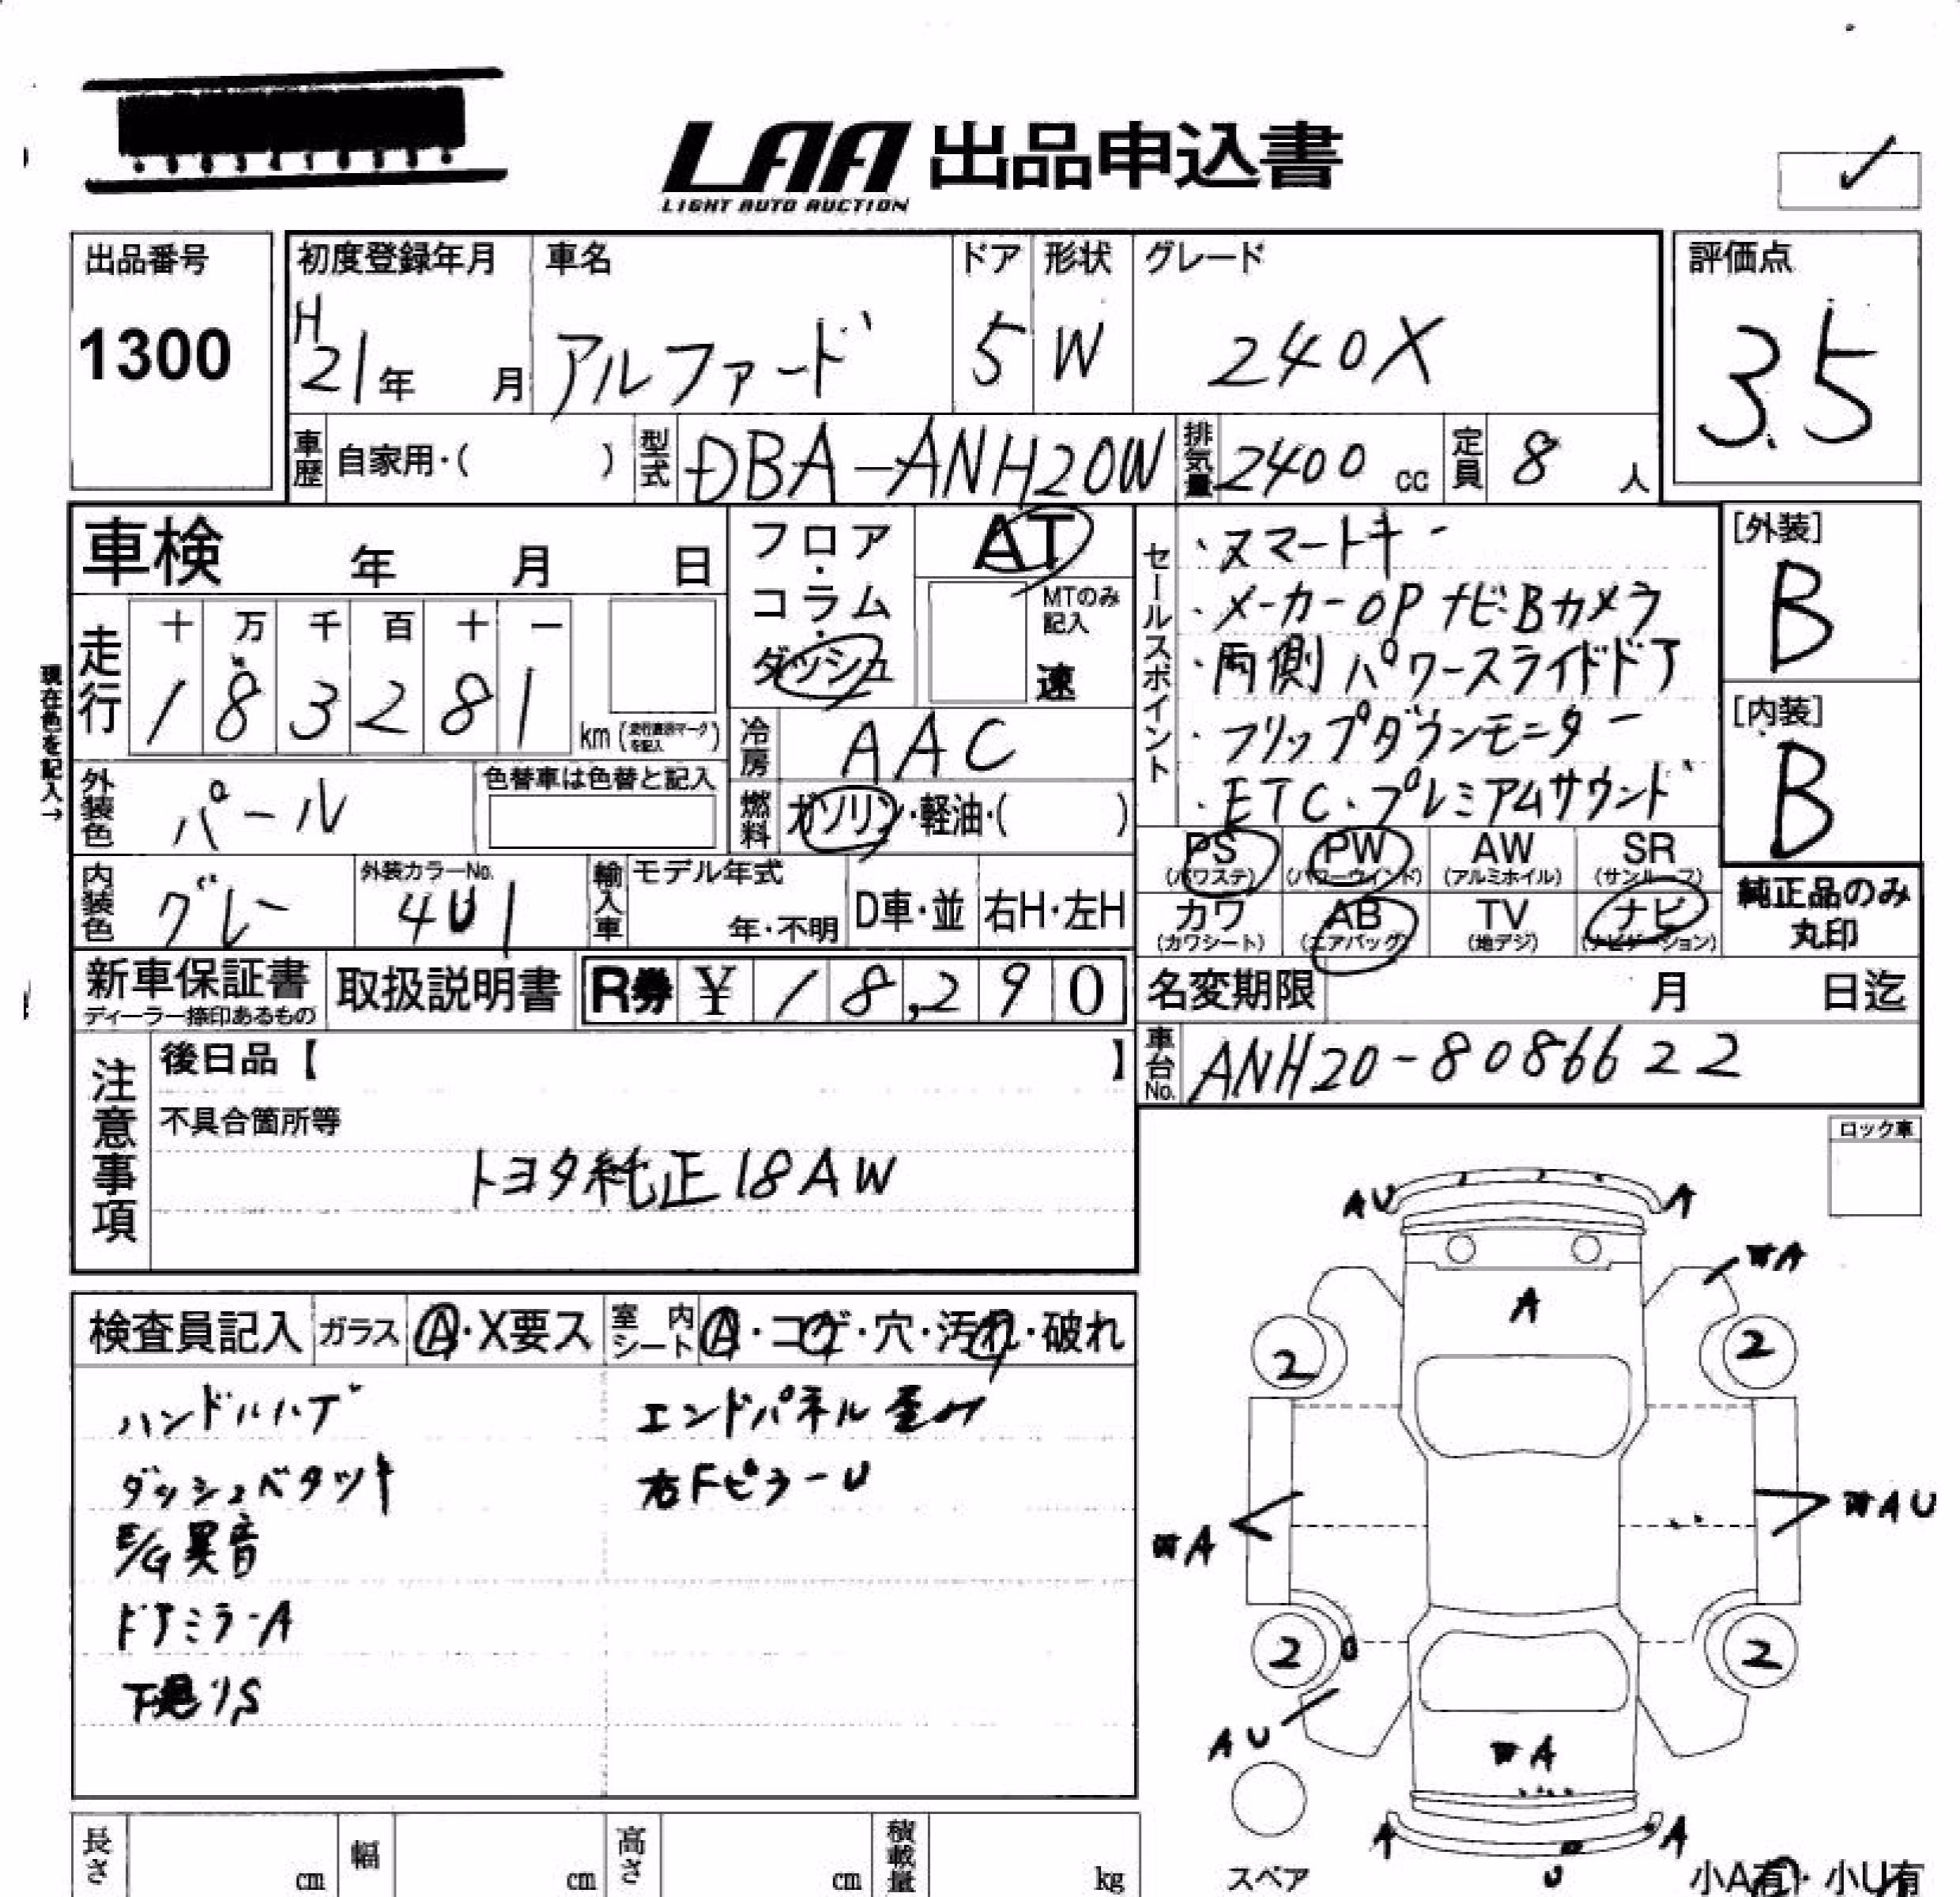 LAA 出品申込書
LIGHT AUTO AUCTION
出品番号
1300
初度登録年月
H
21年 月
車名
アルファード
ドア
5
形状
W
グレード
240X
評価点
3.5
車歴 自家用・( )
型式 DBA-ANH20W
排気量 2400 cc
定員 8 人
車検 年 月 日
フロア・コラム・ダッシュ
AT
MTのみ記入
速
セールスポイント
・スマートキー
・メーカーOPナビ・Bカメラ
・両側パワースライドドア
・フリップダウンモニター
・ETC・プレミアムサウンド
[外装]
B
[内装]
B
現在色を記入→
走行
十 万 千 百 十 一
1 8 3 2 8 1
km
冷房 AAC
燃料 ガソリン・軽油・( )
外装色 パール
色替車は色替と記入
内装色 グレー
外装カラーNo.
4U1
輸入車
モデル年式
年・不明
D車・並
右H・左H
PS
(パワステ)
PW
(パワーウィンド)
AW
(アルミホイル)
SR
(サンルーフ)
カワ
(カワシート)
AB
(エアバッグ)
TV
(地デジ)
ナビ
(ナビゲーション)
純正品のみ
丸印
新車保証書
ディーラー捺印あるもの
取扱説明書
R券 ¥ 18,290
名変期限 月 日迄
車台No. ANH20-8086622
注意事項
後日品【 】
不具合箇所等
トヨタ純正18AW
ロック車
検査員記入
ガラス
A・X要ス
室内シート
A・コゲ・穴・汚れ・破れ
ハンドルハゲ
ダッシュベタツキ
E/G異音
ドアミラーA
下廻りS
エンドパネル歪み
右FピラーU
AU
A
A
A
2
2
A
AU
2
2
AU
A
A
A
U
スペア
小A有・小U有
長さ cm
幅 cm
高さ cm
積載量 kg